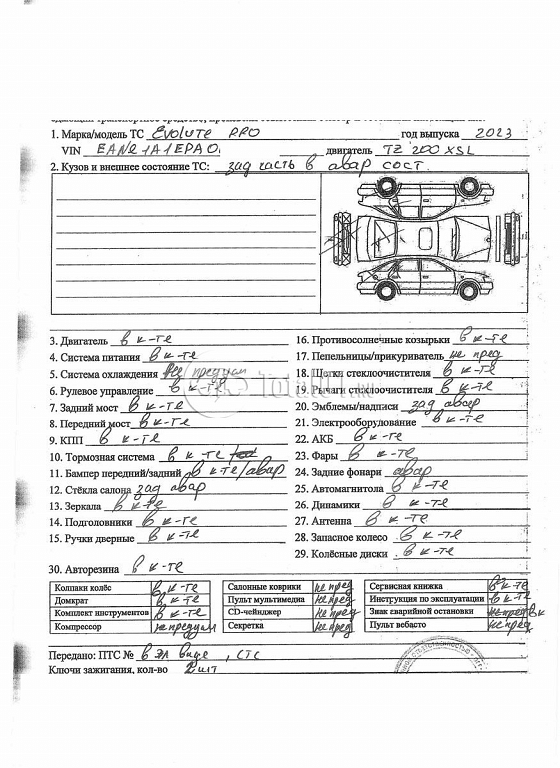 1. Марка/модель ТС Evolute PRO год выпуска 2023
VIN EANR1A1EPA0 двигатель TZ 200 XSL
2. Кузов и внешнее состояние ТС: зад часть в авар сост.
3. Двигатель в к-те
4. Система питания в к-те
5. Система охлаждения не предусм
6. Рулевое управление в к-те
7. Задний мост в к-те
8. Передний мост в к-те
9. КПП в к-те
10. Тормозная система в к-те
11. Бампер передний/задний в к-те/авар
12. Стёкла салона зад авар
13. Зеркала в к-те
14. Подголовники в к-те
15. Ручки дверные в к-те
16. Противосолнечные козырьки в к-те
17. Пепельницы/прикуриватель не пред
18. Щетки стеклоочистителя в к-те
19. Рычаги стеклоочистителя в к-те
20. Эмблемы/надписи зад авар
21. Электрооборудование в к-те
22. АКБ в к-те
23. Фары в к-те
24. Задние фонари авар
25. Автомагнитола в к-те
26. Динамики в к-те
27. Антенна в к-те
28. Запасное колесо в к-те
29. Колёсные диски в к-те
30. Авторезина в к-те
Колпаки колёс в к-те Салонные коврики не пред Сервисная книжка в к-те
Домкрат в к-те Пульт мультимедиа не пред Инструкция по эксплуатации в к-те
Комплект инструментов в к-те CD-чейнджер не пред Знак аварийной остановки не пред вк
Компрессор не предусм Секретка не пред Пульт вебасто не пред
Передано: ПТС № в эл виде, СТС
Ключи зажигания, кол-во 2 шт